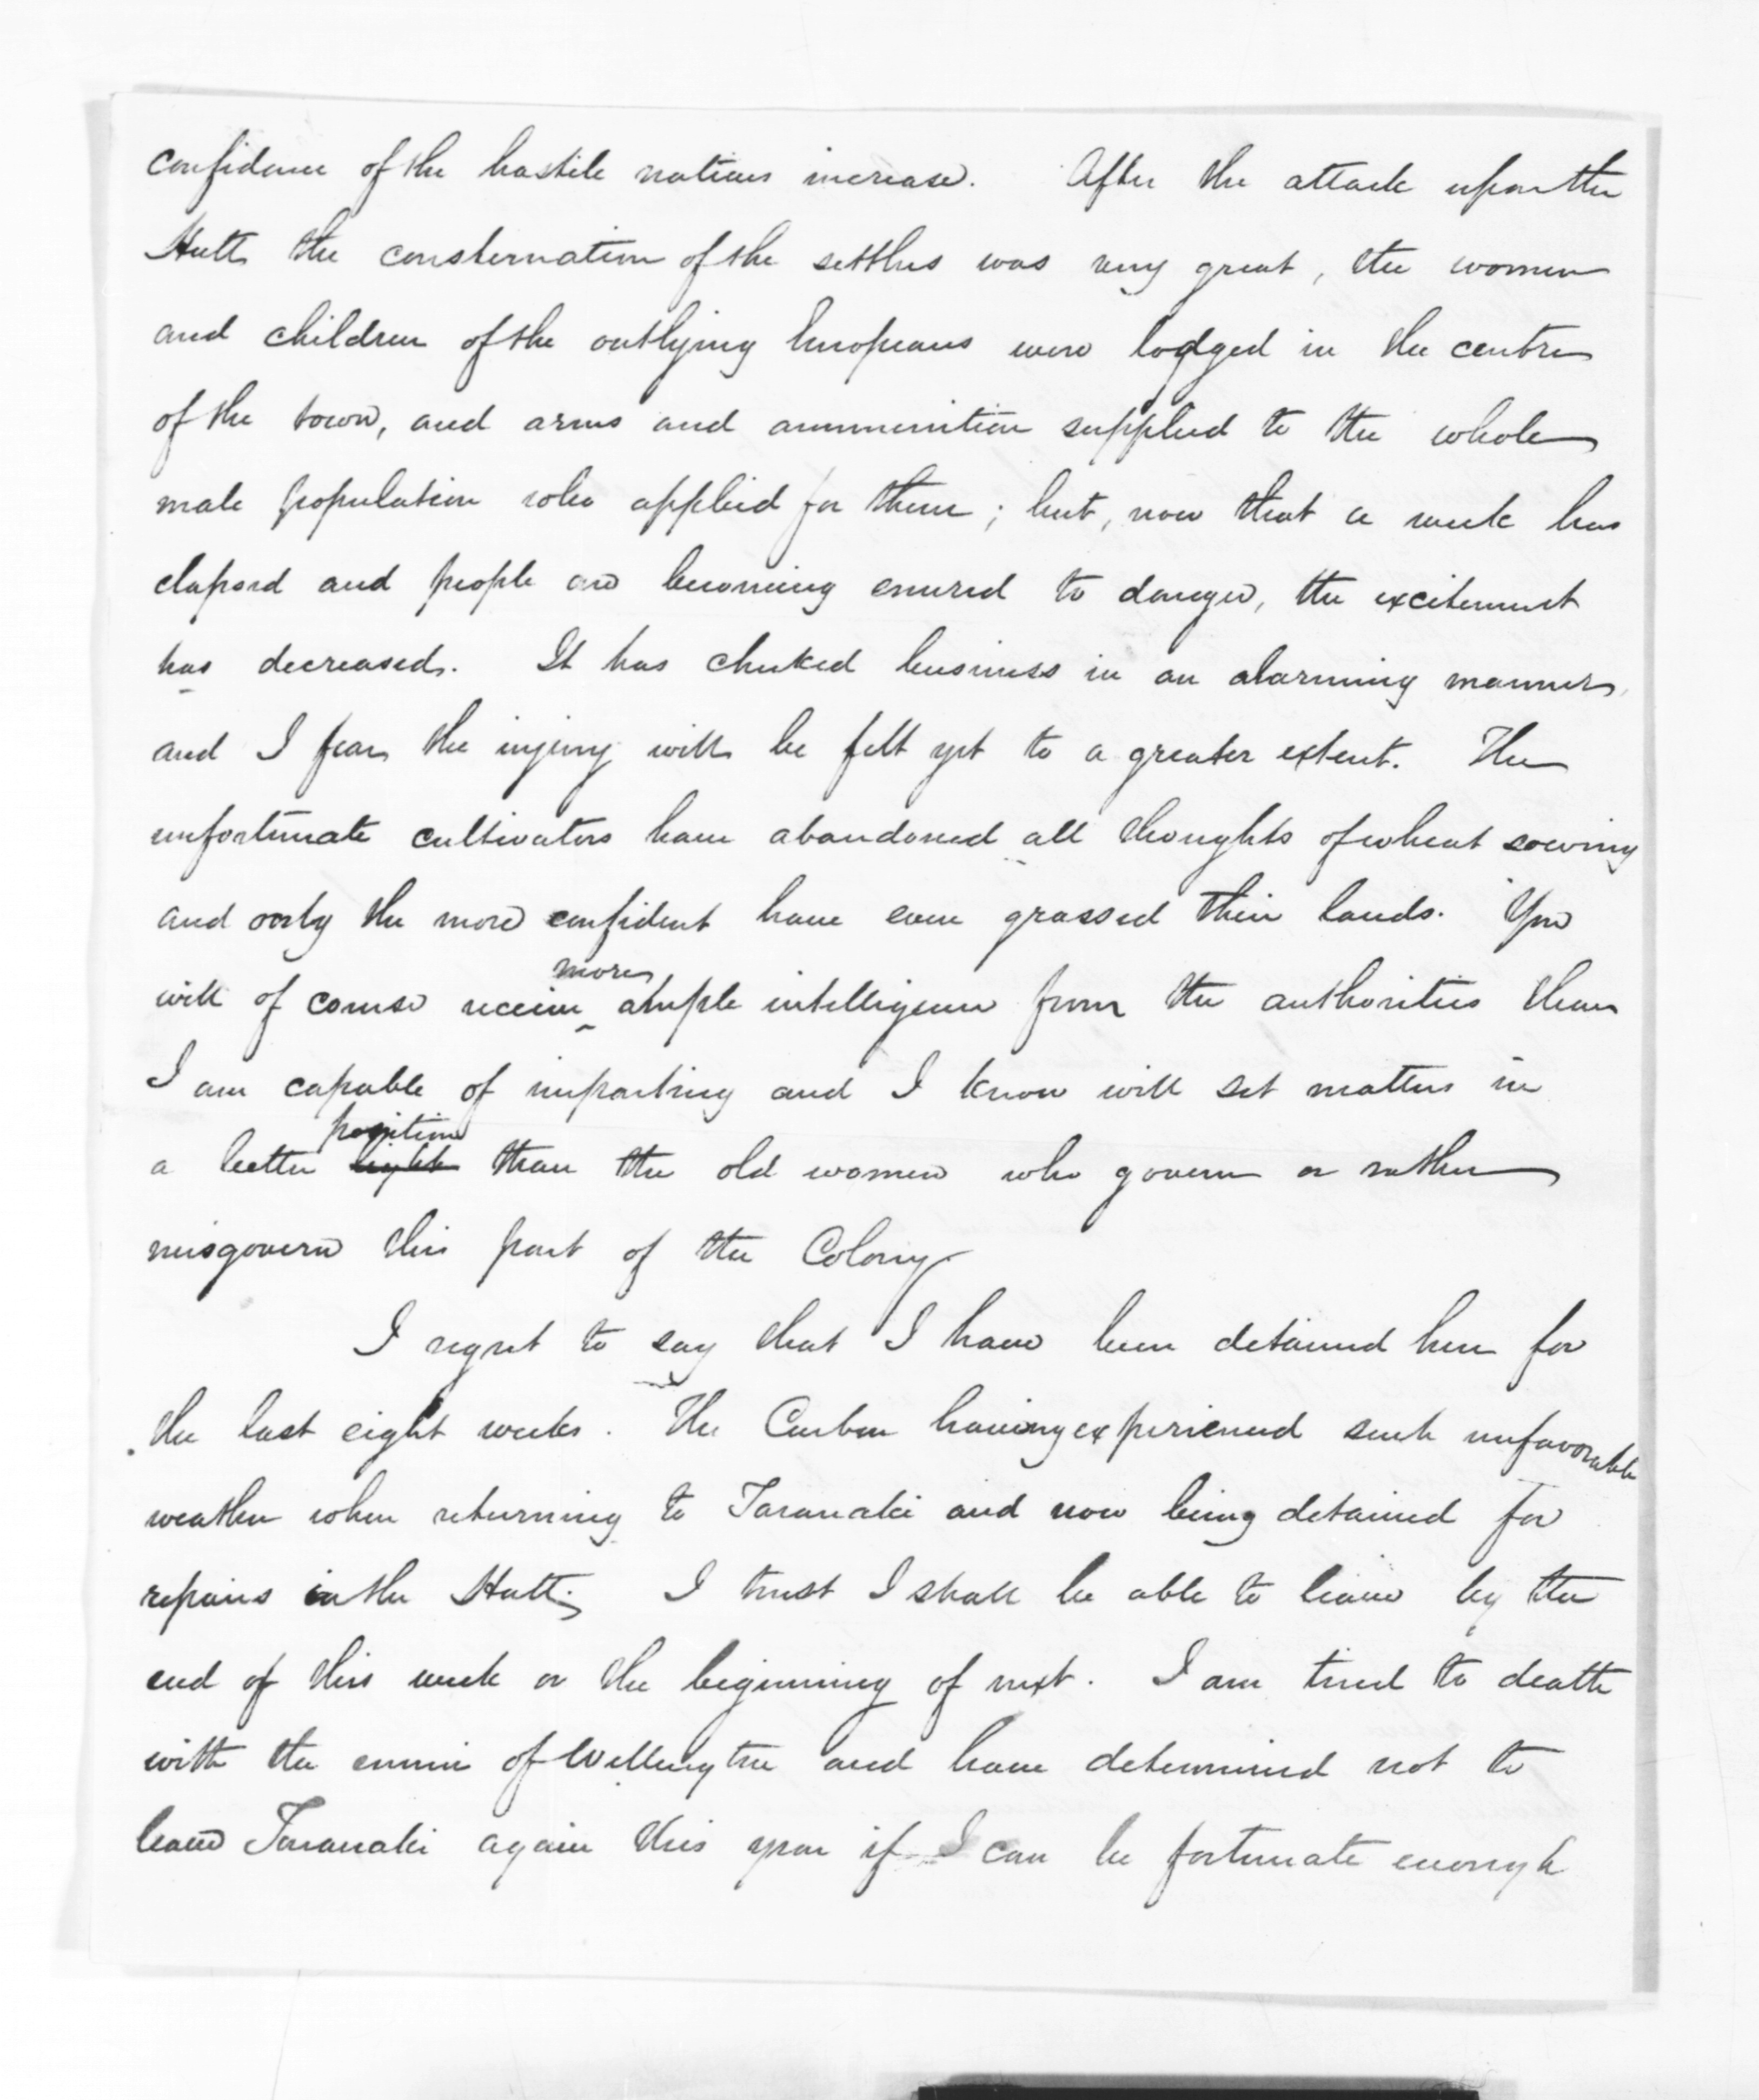 confidence of the hostile natives increase. After the attack upon the
Hutt the consternation of the settlers was very great, the women
and children of the outlying Europeans were lodged in the centre
of the town, and arms and ammunition supplied to the whole
male population who applied for them; but, now that a week has
elapsed and people are becoming enured to danger, the excitement
has decreased. It has checked business in an alarming manner,
and I fear the injury will be felt yet to a greater extent. The
unfortunate cultivators have abandoned all thoughts of wheat sowing
and only the more confident have even grassed their lands. You
more
will of course receive ample intelligence from the authorities than
I am capable of imparting and I know will set matters in
position
a better light than the old women who govern or rather
misgovern this part of the Colony.
I regret to say that I have been detained here for
the last eight weeks. The Carbon having experienced such unfavorable
weather when returning to Taranaki and now being detained for
repairs in the Hutt. I trust I shall be able to leave by the
end of this week or the beginning of next. I am tired to death
with the ennui of Wellington and have determined not to
leave Taranaki again this year if I can be fortunate enough